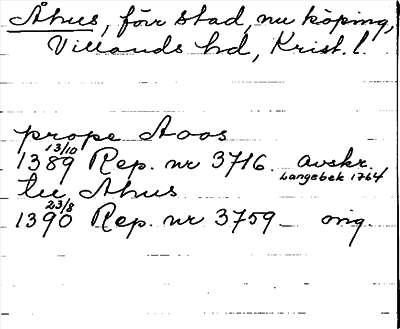 Åhus, förr stad, nu köping,
Villands hd, Krist. l.
prope Aoos
13/10
1389 Rep. nr 3716. avskr.
Langebek 1764
tee Ahus
23/8
1390 Rep. nr 3759 – orig.